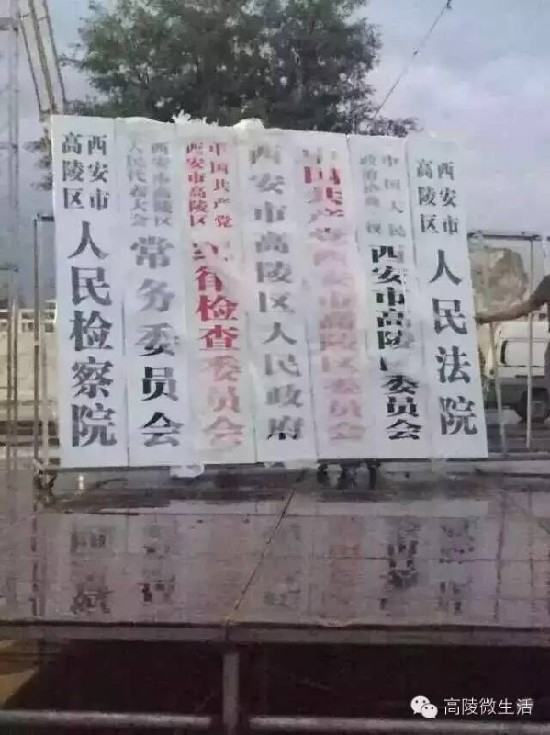 西安市
高陵区
人民检察院
西安市高陵区
人民代表大会
常务委员会
中国共产党
西安市高陵区
纪律检查委员会
西安市高陵区人民政府
中国共产党西安市高陵区委员会
中国人民
政治协商
西安市高陵区委员会
西安市
高陵区
人民法院
高陵微生活